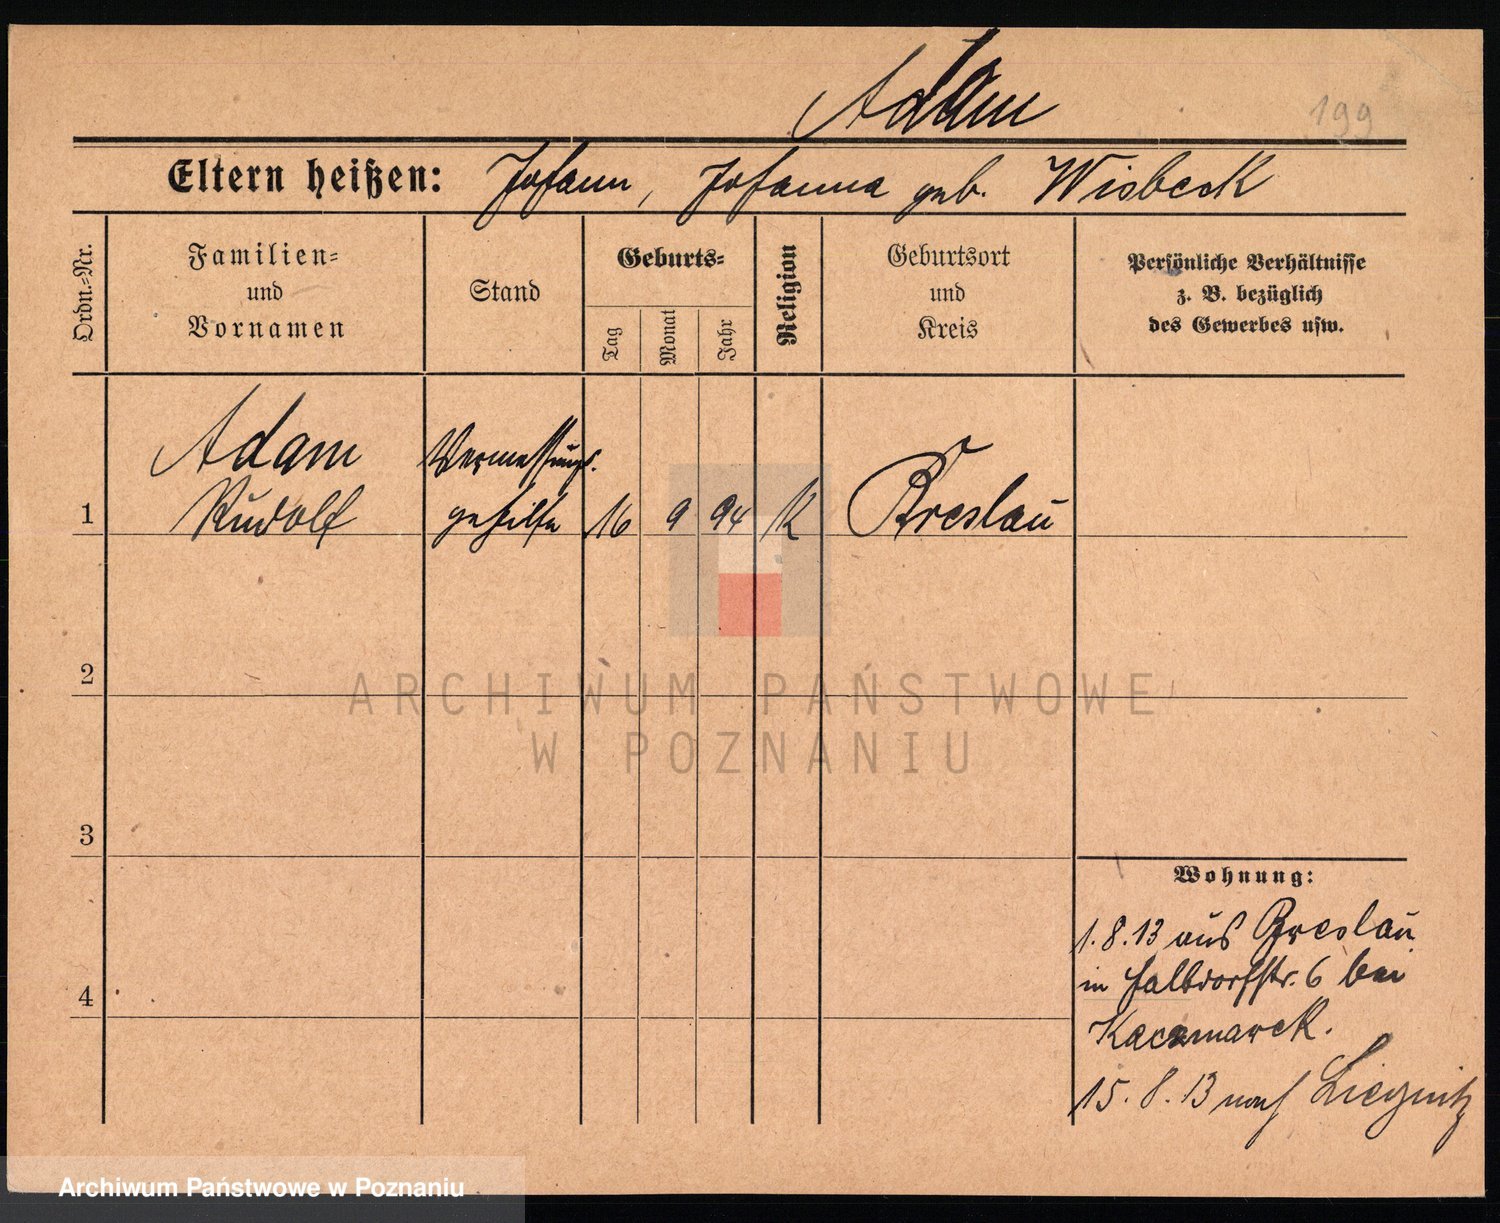 Adam
199
Eltern heißen: Johann, Johanna geb. Wisbeck
Ordn.-Nr.
Familien-
und
Vornamen
Stand
Geburts-
Tag
Monat
Jahr
Religion
Geburtsort
und
Kreis
Persönliche Verhältnisse
z. B. bezüglich
des Gewerbes usw.
Adam Vermessungs.
1 Rudolf gehilfe 16 9 94 K Breslau
2
ARCHIWUM PAŃSTWOWE
W POZNANIU
3
Wohnung:
1.8.13 aus Breslau
in 6 bei
Kaczmarek.
4
15.8.13 nach Liegnitz
Archiwum Państwowe w Poznaniu